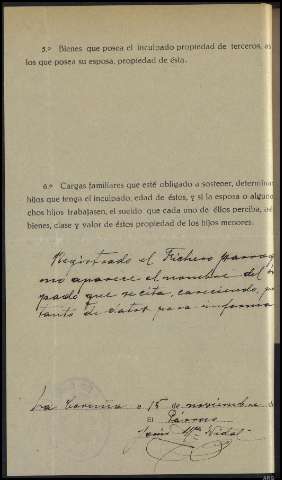 5.º Bienes que posea el inculpado propiedad de terceros, as
los que posea su esposa, propiedad de ésta.
6.º Cargas familiares que esté obligado a sostener, determinar
hijos que tenga el inculpado, edad de éstos, y si la esposa o alguno
chos hijos trabajasen, el sueldo que cada uno de éllos perciba,
bienes, clase y valor de éstos propiedad de los hijos menores.
Registrado el Fichero parroq
no aparece el nombre del in
pado que se cita, careciendo, po
tanto de datos para informa
La Coruña a 15 de noviembre de
El Párroco
Vidal